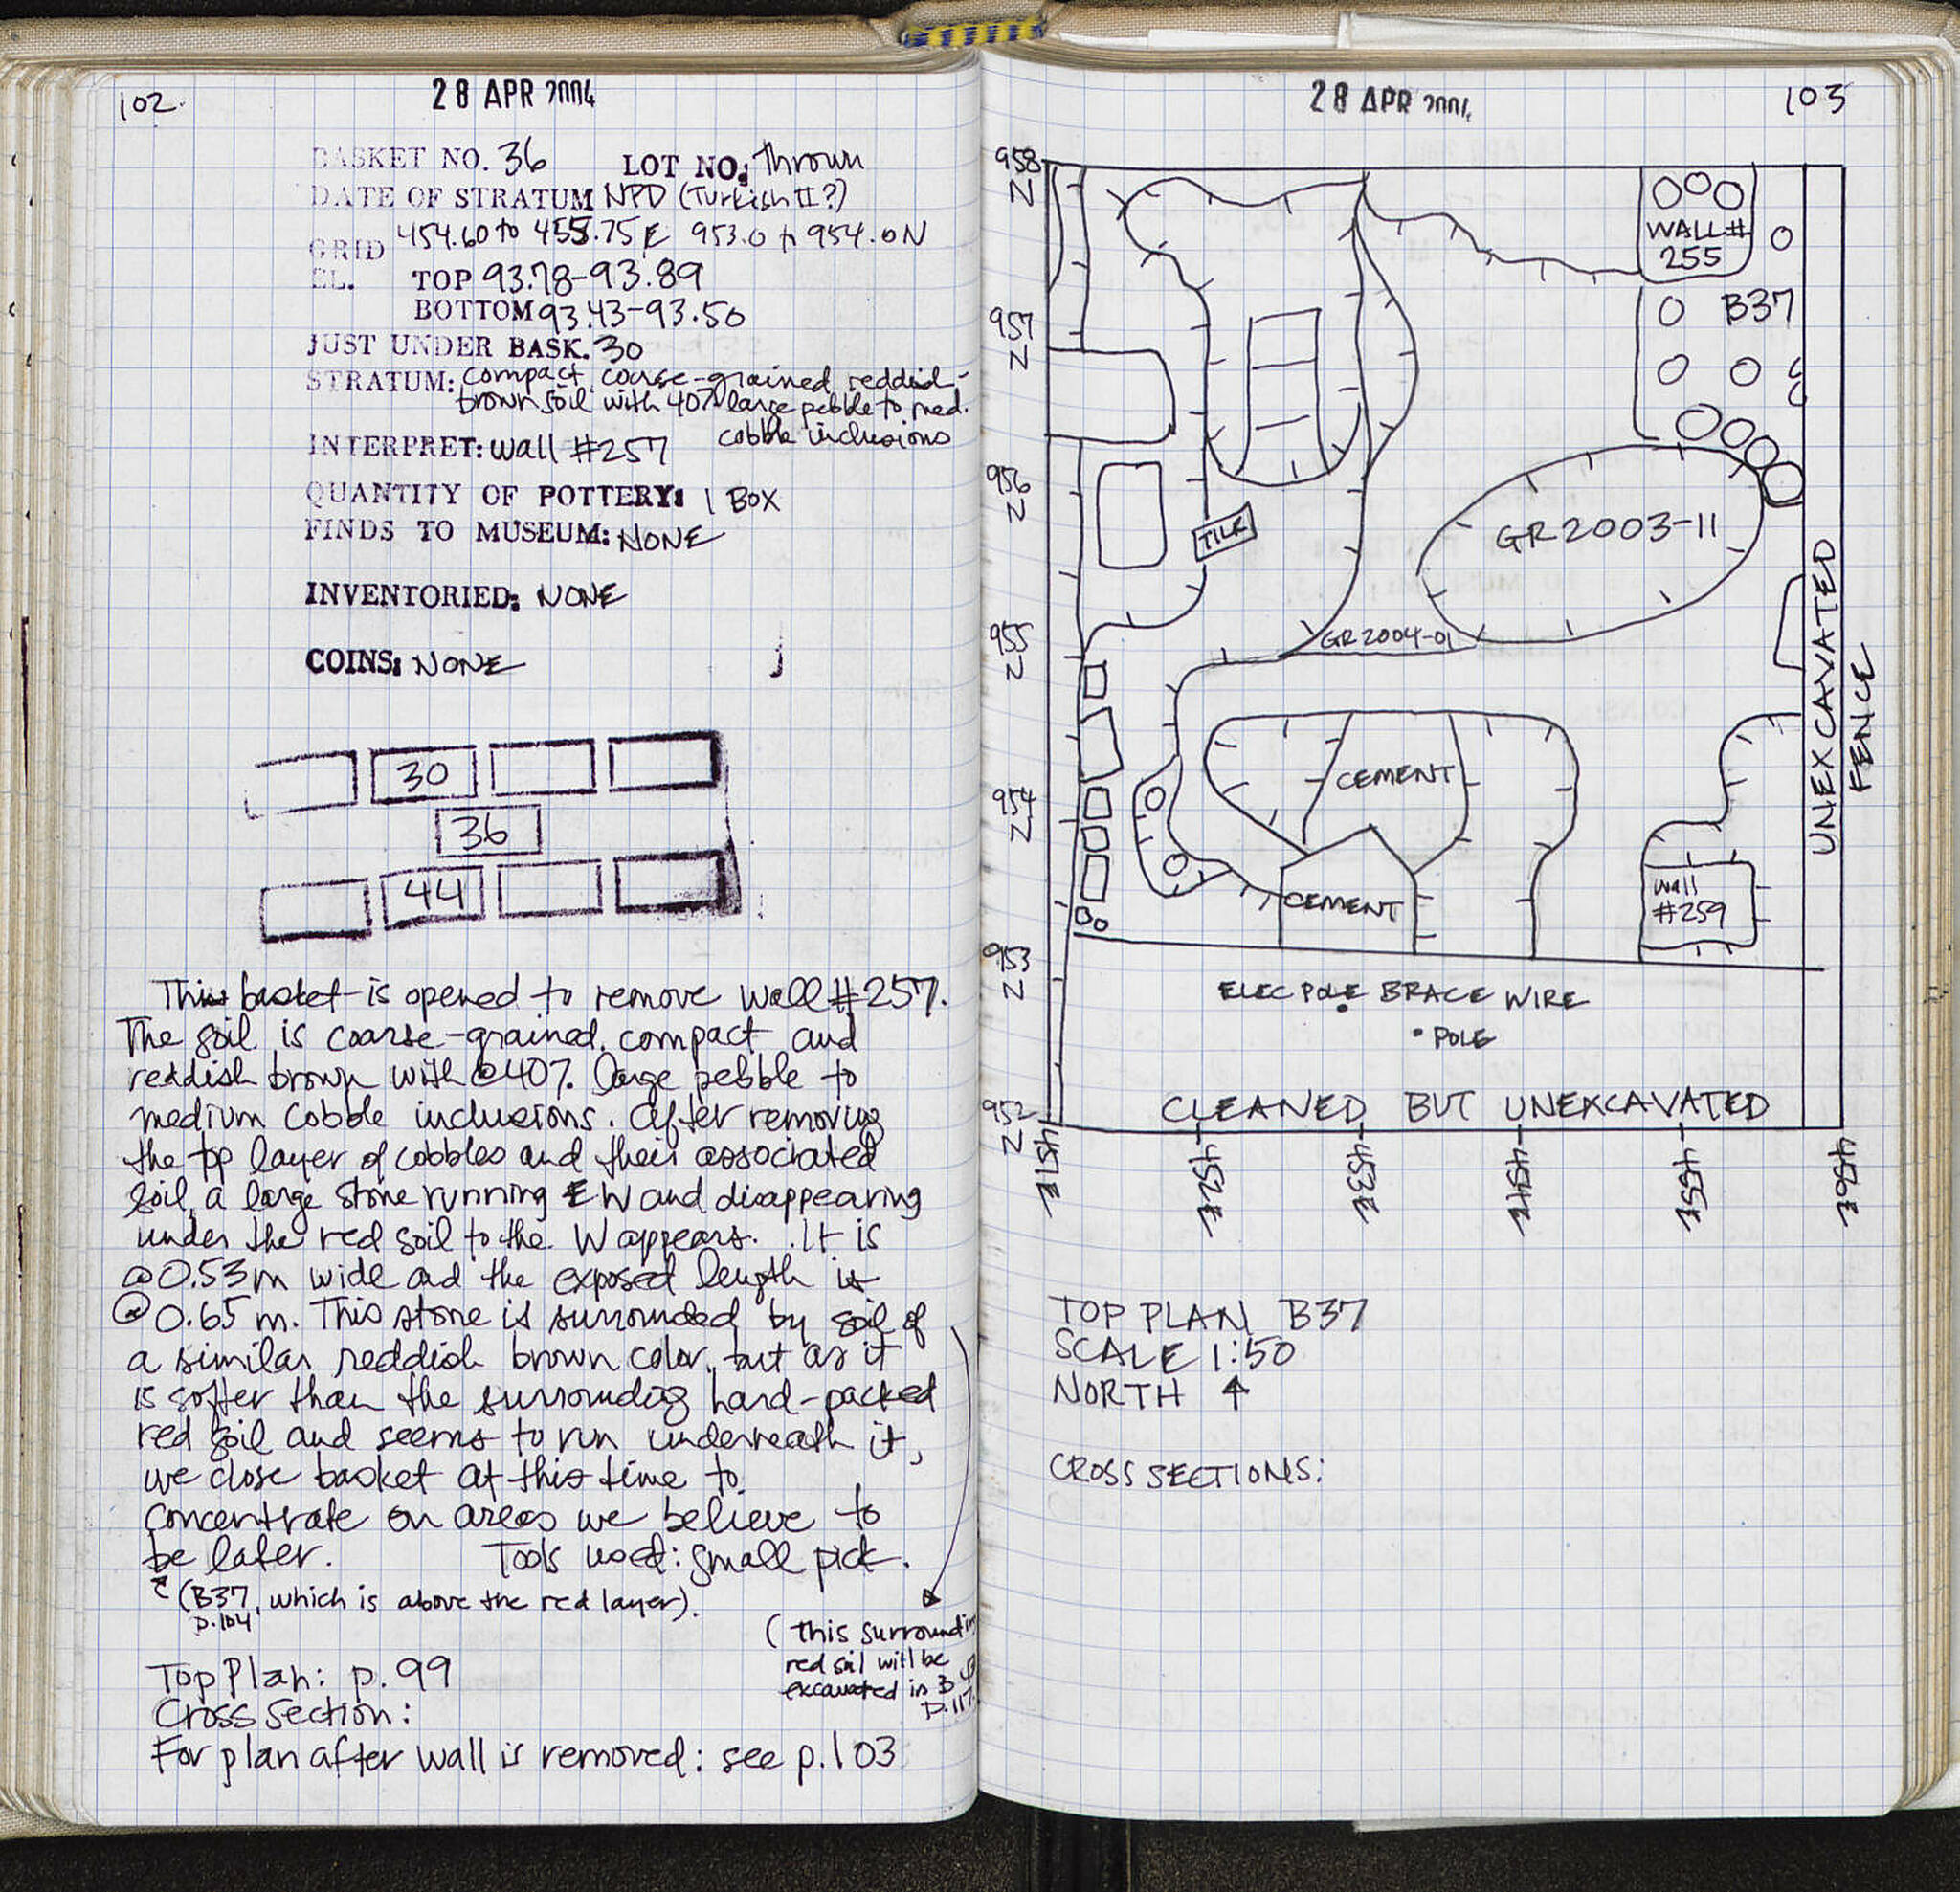 102.
28 APR 2004
BASKET NO. 36 LOT NO: thrown
DATE OF STRATUM NPD (Turkish II?)
GRID 454.60 to 455.75 E 953.0 to 954.0 N
EL. TOP 93.78-93.89
BOTTOM 93.43-93.50
JUST UNDER BASK. 30
STRATUM: compact, coarse-grained reddish-
brown soil with 40% large pebble to med.
cobble inclusions
INTERPRET: Wall #257
QUANTITY OF POTTERY: 1 BOX
FINDS TO MUSEUM: NONE
INVENTORIED: NONE
COINS: NONE
30
36
44
This basket is opened to remove wall #257.
The soil is coarse-grained, compact and
reddish brown with @40% large pebble to
medium cobble inclusions. After removing
the top layer of cobbles and their associated
soil, a large stone running EW and disappearing
under the red soil to the W appears. It is
@0.53m wide and the exposed length is
@0.65 m. This stone is surrounded by soil of
a similar reddish brown color, but as it
is softer than the surrounding hard-packed
red soil and seems to run underneath it,
we close basket at this time to
concentrate on areas we believe to
be later. Tools used: small pick.
(B37, which is above the red layer).
p.104
(this surrounding
red soil will be
excavated in B
p.117
Top Plan: p.99
Cross Section:
For plan after wall is removed: see p.103
28 APR 2004
103
958 N
957 N
956 N
955 N
954 N
953 N
952 N
WALL #
255
B37
GR2003-11
TILE
GR2004-01
UNEXCAVATED
FENCE
CEMENT
CEMENT
wall
#259
ELEC POLE BRACE WIRE
POLE
CLEANED BUT UNEXCAVATED
451E
452E
453E
454E
455E
456E
TOP PLAN B37
SCALE 1:50
NORTH ↑
CROSS SECTIONS: